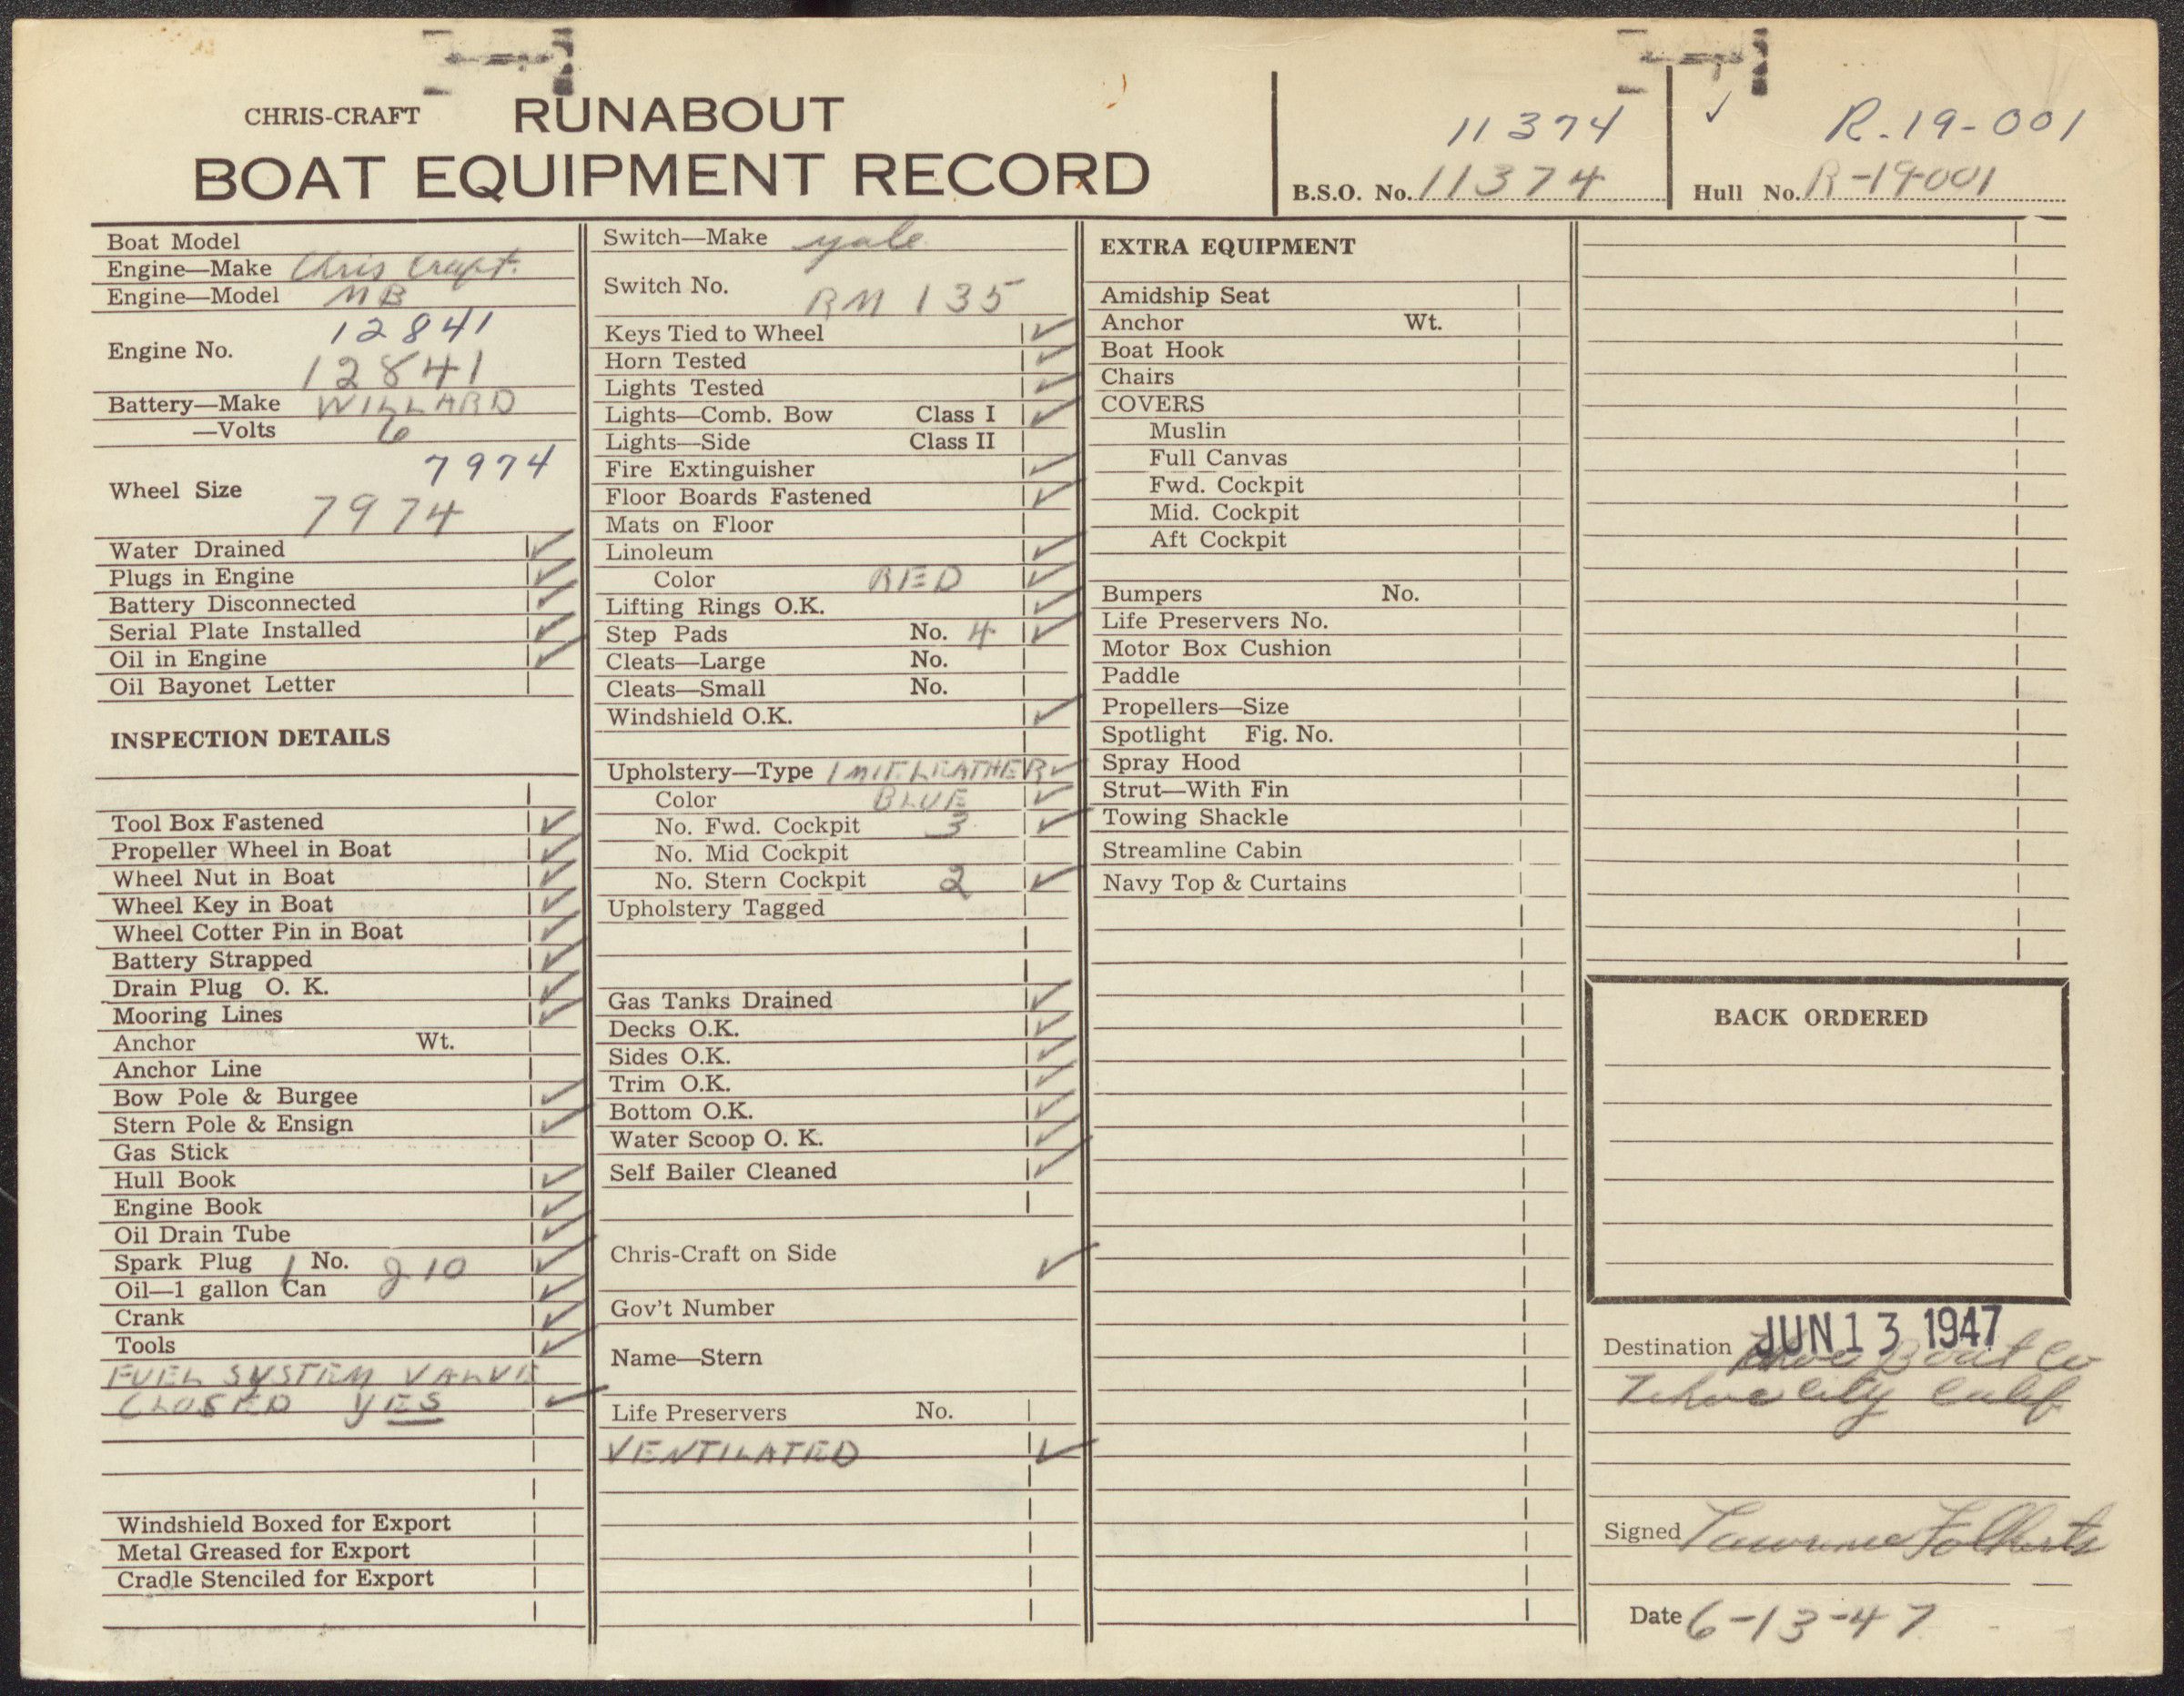 CHRIS-CRAFT RUNABOUT
BOAT EQUIPMENT RECORD
11374
B.S.O. No. 11374
✓ R-19-001
Hull No. R-19-001
Boat Model
Engine—Make Chris Craft.
Engine—Model MB
12841
Engine No.
12841
Battery—Make WILLARD
—Volts 6
7974
Wheel Size
7974
Water Drained ✓
Plugs in Engine ✓
Battery Disconnected ✓
Serial Plate Installed ✓
Oil in Engine ✓
Oil Bayonet Letter
INSPECTION DETAILS
Tool Box Fastened ✓
Propeller Wheel in Boat ✓
Wheel Nut in Boat ✓
Wheel Key in Boat ✓
Wheel Cotter Pin in Boat ✓
Battery Strapped ✓
Drain Plug O. K. ✓
Mooring Lines ✓
Anchor Wt.
Anchor Line
Bow Pole & Burgee ✓
Stern Pole & Ensign ✓
Gas Stick
Hull Book ✓
Engine Book ✓
Oil Drain Tube ✓
Spark Plug 1 No. J10 ✓
Oil—1 gallon Can ✓
Crank ✓
Tools ✓
FUEL SYSTEM VALVE
CLOSED YES ✓
Windshield Boxed for Export
Metal Greased for Export
Cradle Stenciled for Export
Switch—Make yale
Switch No. RM 135
Keys Tied to Wheel ✓
Horn Tested ✓
Lights Tested ✓
Lights—Comb. Bow Class I ✓
Lights—Side Class II
Fire Extinguisher ✓
Floor Boards Fastened ✓
Mats on Floor
Linoleum ✓
Color RED ✓
Lifting Rings O.K. ✓
Step Pads No. 4 ✓
Cleats—Large No.
Cleats—Small No.
Windshield O.K. ✓
Upholstery—Type IMIT. LEATHER ✓
Color BLUE ✓
No. Fwd. Cockpit 3 ✓
No. Mid Cockpit
No. Stern Cockpit 2 ✓
Upholstery Tagged
Gas Tanks Drained ✓
Decks O.K. ✓
Sides O.K. ✓
Trim O.K. ✓
Bottom O.K. ✓
Water Scoop O. K. ✓
Self Bailer Cleaned ✓
Chris-Craft on Side ✓
Gov't Number
Name—Stern
Life Preservers No.
VENTILATED ✓
EXTRA EQUIPMENT
Amidship Seat
Anchor Wt.
Boat Hook
Chairs
COVERS
Muslin
Full Canvas
Fwd. Cockpit
Mid. Cockpit
Aft Cockpit
Bumpers No.
Life Preservers No.
Motor Box Cushion
Paddle
Propellers—Size
Spotlight Fig. No.
Spray Hood
Strut—With Fin
Towing Shackle
Streamline Cabin
Navy Top & Curtains
BACK ORDERED
JUN 13 1947
Destination Tahoe Boat Co
Tahoe City Calif
Signed Lawrence Folkerts
Date 6-13-47